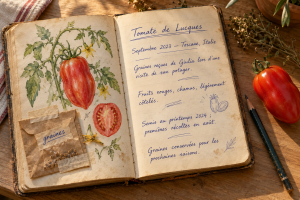 graines
Tomate de Lucques
Septembre 2023 — Toscane, Italie
Graines reçues de Giulia lors d'une
visite de son potager.
Fruits rouges, charnus, légèrement
côtelés.
Semis en printemps 2024,
premières récoltes en août.
Graines conservées pour les
prochaines saisons.